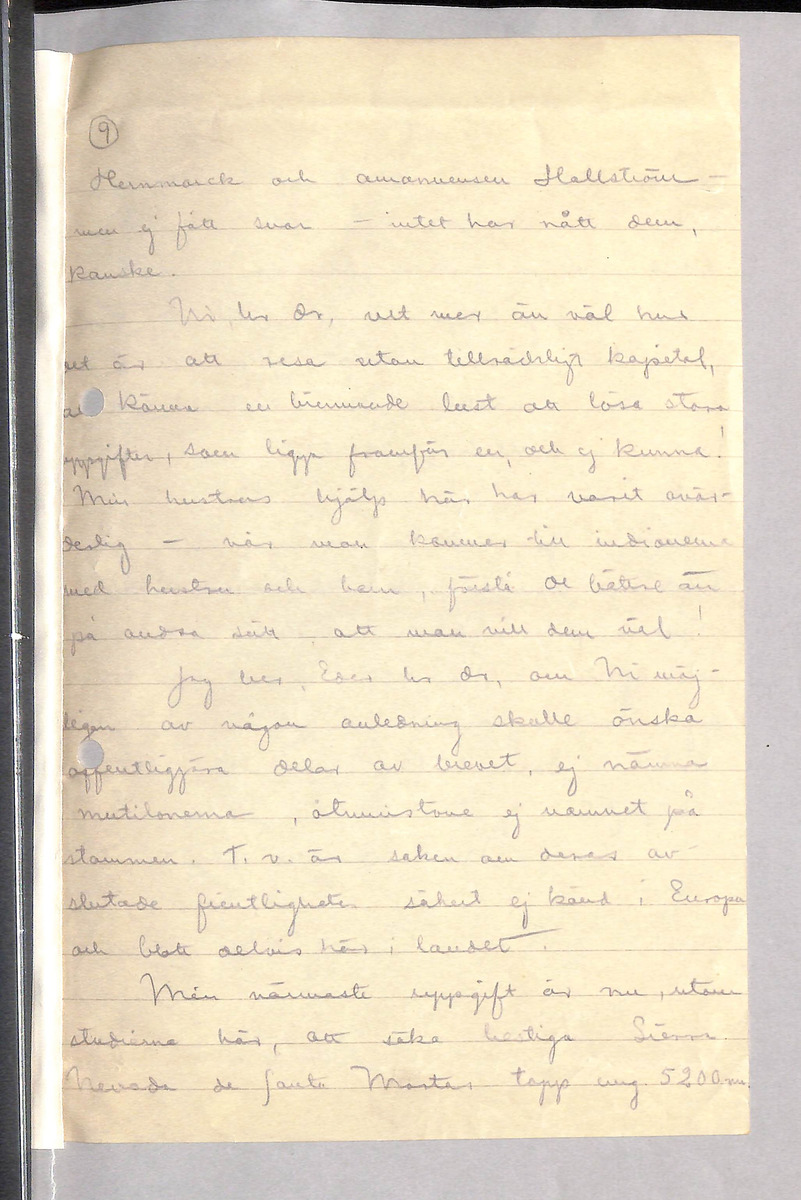 9
Hernmarck och amanuensen Hallström –
men ej fått svar – intet har nått dem,
kanske.
Ni, hr Dr, vet mer än väl hur
det är att resa utan tillräckligt kapital,
att känna en brinnande lust att lösa stora
uppgifter, som ligga framför en, och ej kunna!
Min hustrus hjälp här har varit ovär-
derlig – när man kommer till indianerna
med hustru och barn, förstå de bättre än
på andra sätt, att man vill dem väl!
Jag ber, Eder hr Dr, om Ni möj-
ligen av någon anledning skulle önska
offentliggöra delar av brevet, ej nämna
mutilonerna, åtminstone ej namnet på
stammen. T. v. är saken om deras av-
slutade fientligheter säkert ej känd i Europa
och blott delvis här i landet.
Min närmaste uppgift är nu, utom
studierna här, att söka bestiga Sierra
Nevada de Santa Martas topp ung. 5200 m.